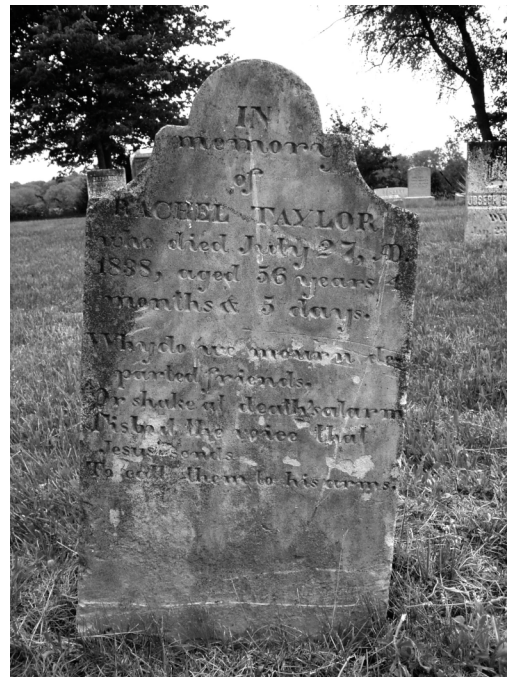 IN
memory
of
RACHEL TAYLOR
who died July 27, AD.
1838, aged 56 years
months & 5 days.
Why do we mourn de
parted friends.
Or shake at death's alarm
Tis but the voice that
Jesus sends
To call them to his arms.
JOSEPH